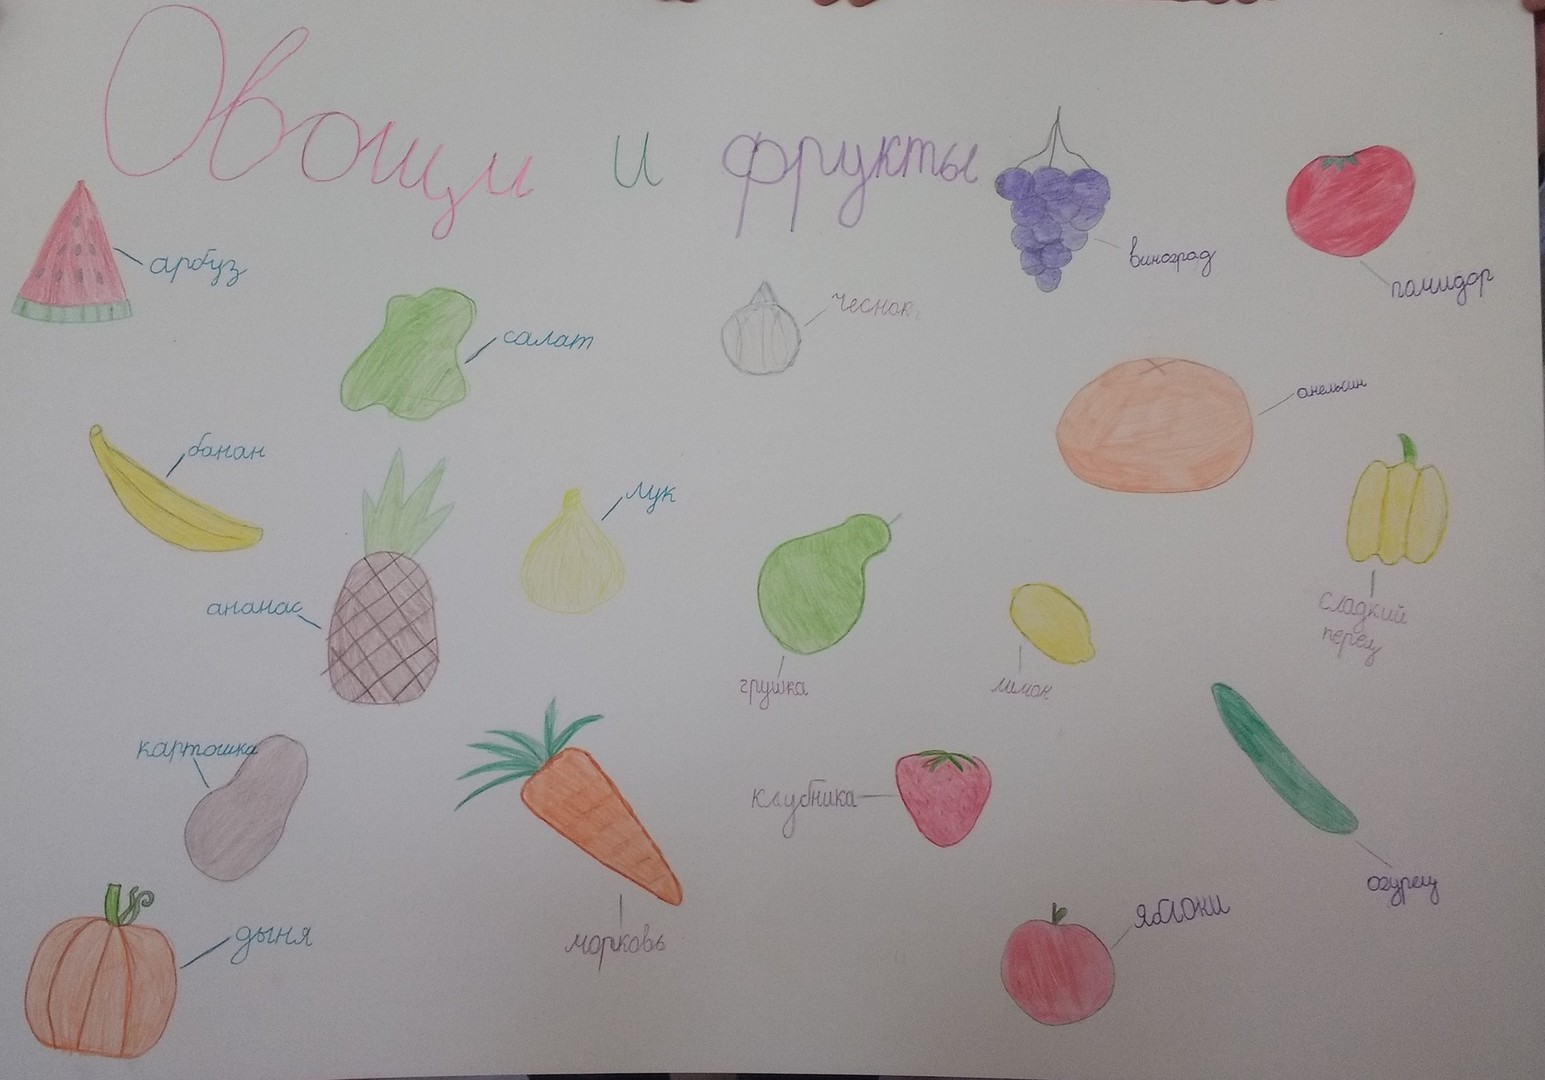 Овощи и фрукты
арбуз
салат
чеснок
виноград
помидор
банан
ананас
лук
грушка
лимон
апельсин
сладкий
перец
картошка
дыня
морковь
клубника
яблоки
огурец